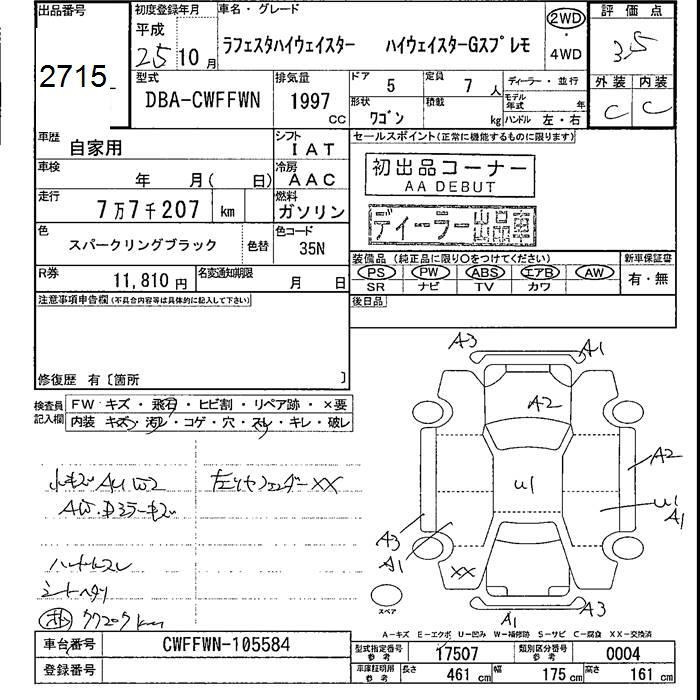 出品番号 初度登録年月 車名・グレード 2WD 評価点
平成
25 10月 ラフェスタハイウェイスター ハイウェイスターGスプレモ ・ 3.5
4WD
2715 型式 排気量 ドア 5 定員 7 人 ディーラー・並行 外装 内装
DBA-CWFFWN 1997 CC 形状 ワゴン 積載 kg モデル年式 年 C C
ハンドル 左・右
車歴 自家用 シフト IAT セールスポイント(正常に機能するものに限ります)
車検 年 月( 日) 冷房 AAC 初出品コーナー
AA DEBUT
走行 7万7千207 km 燃料 ガソリン ディーラー出品車
色 スパークリングブラック 色替 色コード 35N
装備品 (純正品に限り○をつけてください) 新車保証書
R券 11,810円 名変通知期限 月 日 PS PW ABS エアB AW 有・無
SR ナビ TV カワ
注意事項申告欄(不具合内容等は具体的に記入して下さい) 後日品
修復歴 有〔箇所 〕
検査員記入欄 FW キズ・飛石・ヒビ割・リペア跡・×要
内装 キズ・汚レ・コゲ・穴・スレ・キレ・破レ
A3 A1
A2
A2
U1
U1
A1
A3
A1
XX
A1 A3
小キズ AU W2 左リヤフェンダーXX
AW.Dミラーキズ
ハンドルスレ
シートヘタリ
77207km
スペア
A-キズ E-エクボ U-凹み W-補修跡 S-サビ C-腐食 XX-交換済
車台番号 CWFFWN-105584 型式指定番号 参考 17507 類別区分番号 参考 0004
登録番号 車庫証明用 参考 長さ 461 cm 幅 175 cm 高さ 161 cm